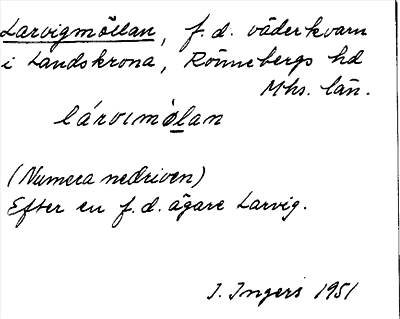 Larvigmöllan, f.d. väderkvarn
i Landskrona, Rönnebergs hd
Mhs. län.
lárvımòlan
(Numera nedriven)
Efter en f.d. ägare Larvig.
I. Ingers 1951